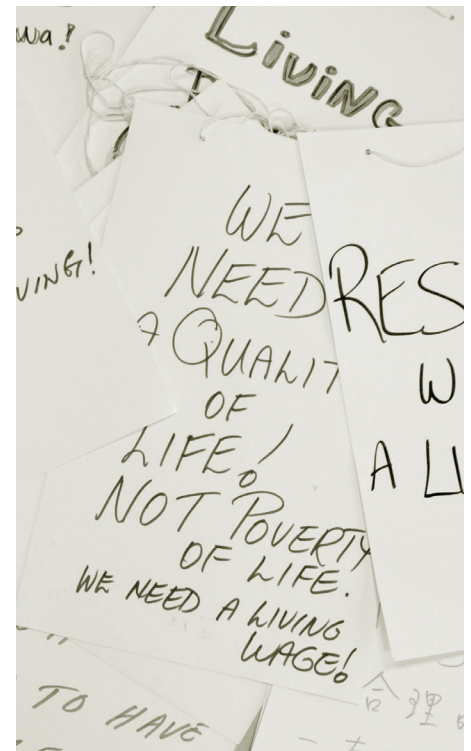 Living
WE
NEED
A QUALIT
OF
LIFE!
NOT POVERTY
OF LIFE.
WE NEED A LIVING
WAGE!
RES
W
A LI
VING!
TO HAVE
合理